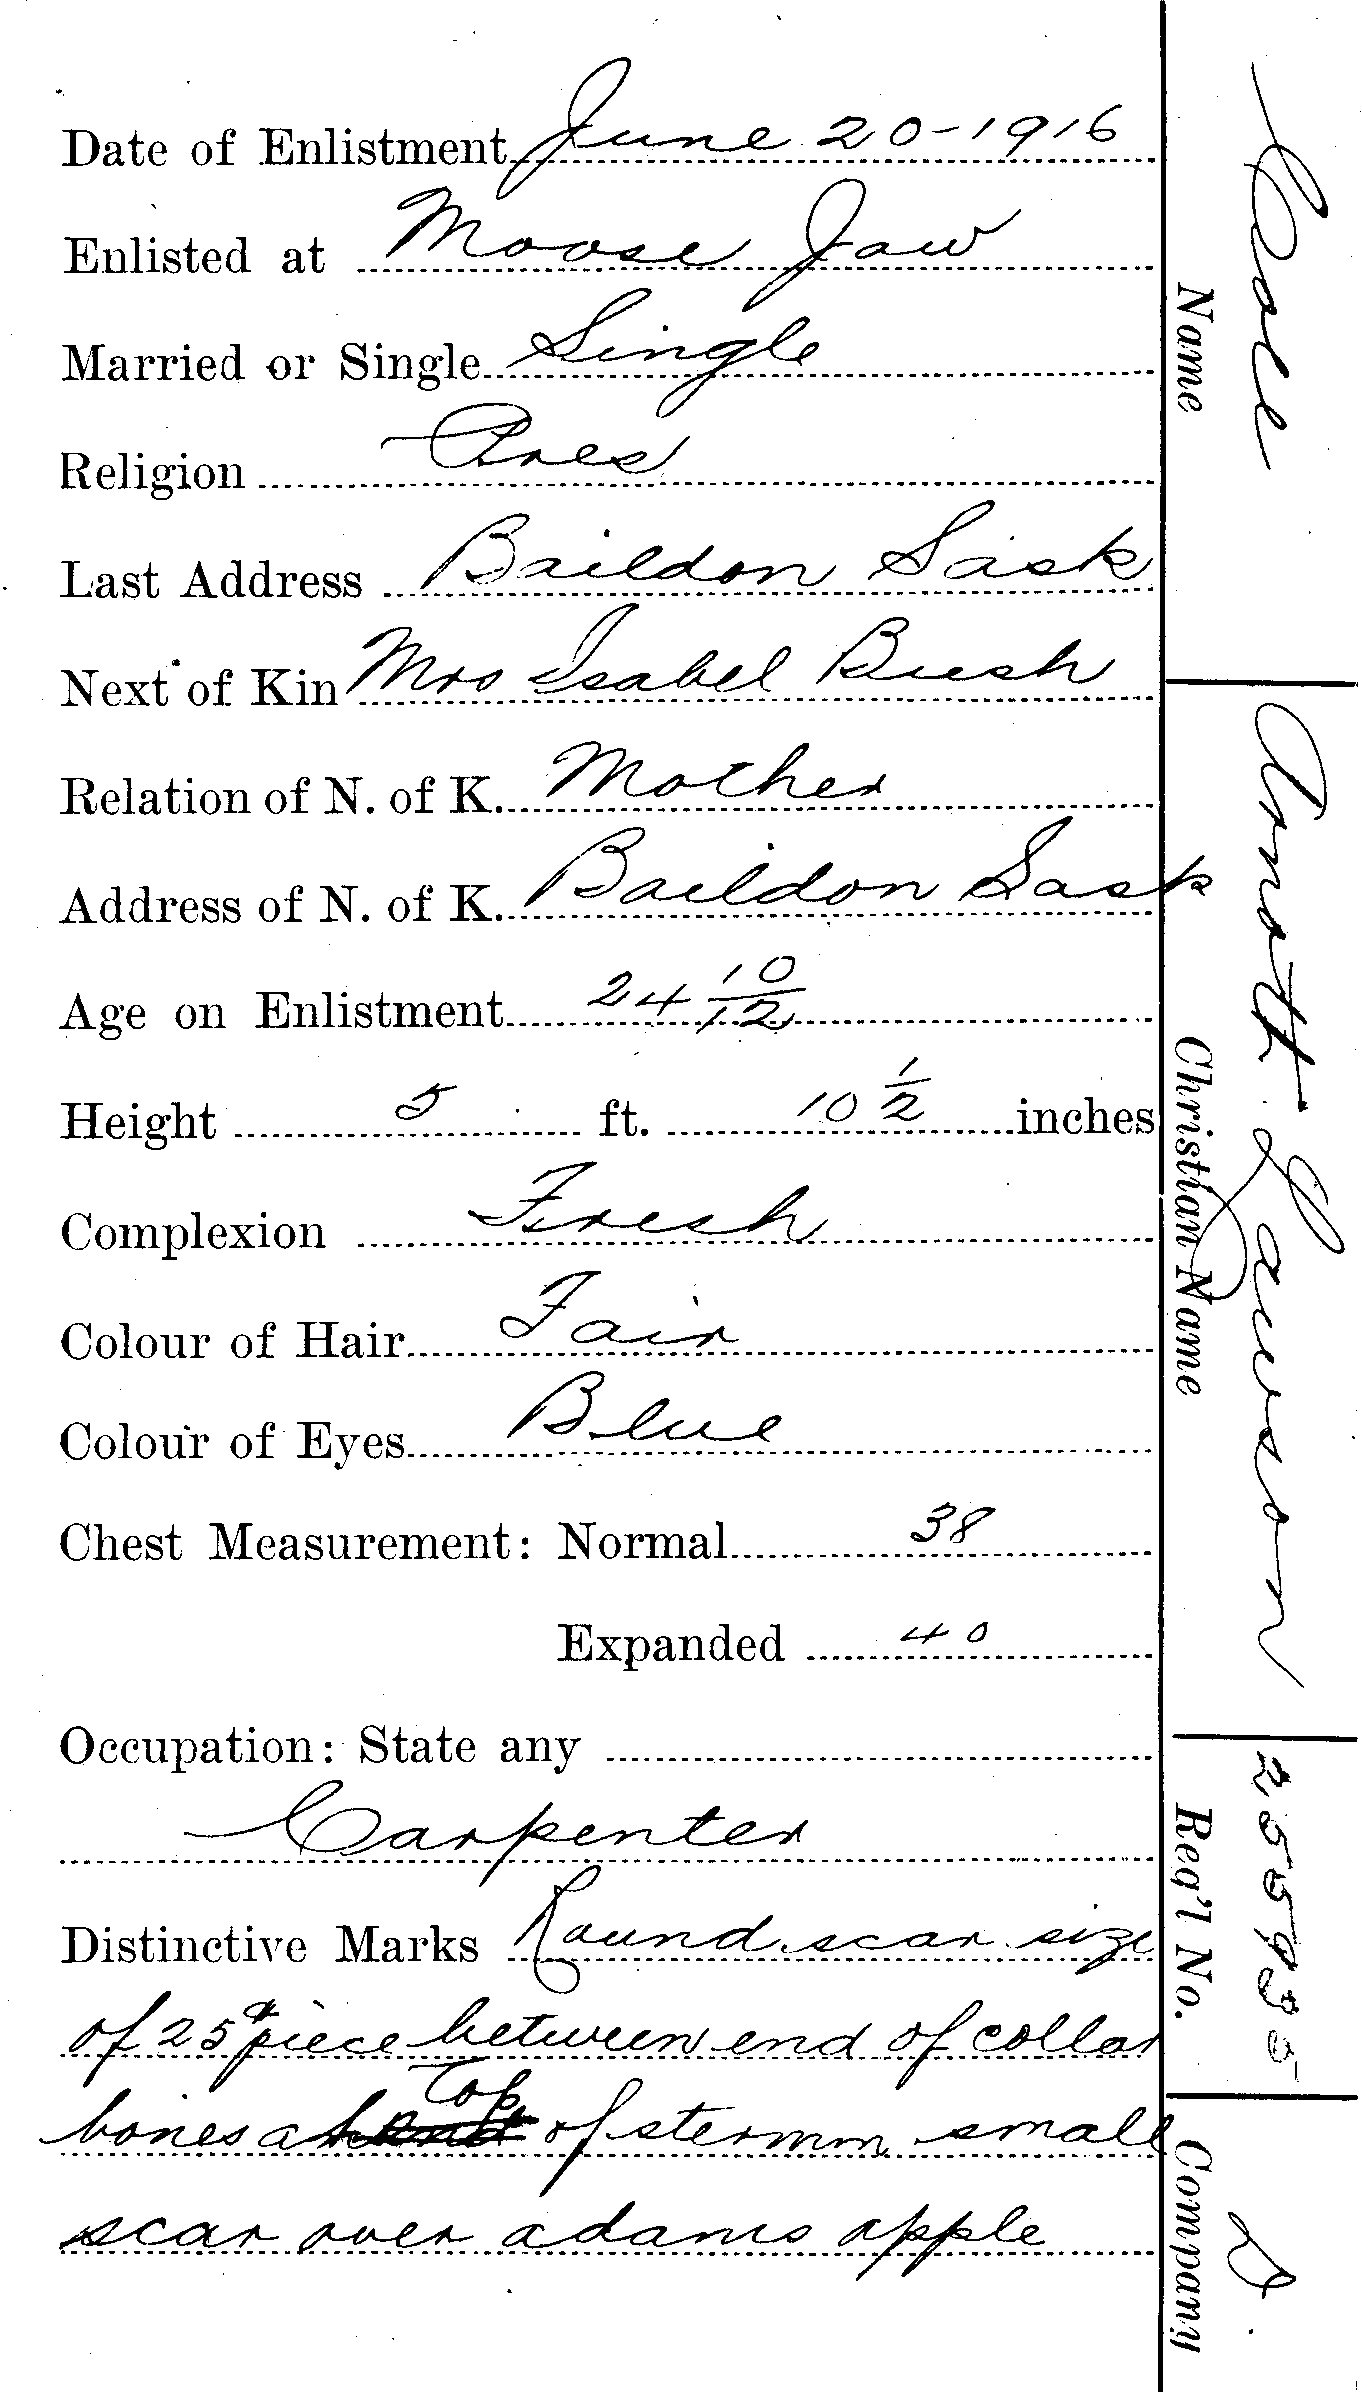 Date of Enlistment June 20-1916
Enlisted at Moose Jaw
Married or Single Single
Religion Pres
Last Address Baildon Sask
Next of Kin Mrs Isabel Bush
Relation of N. of K. Mother
Address of N. of K. Baildon Sask
Age on Enlistment 24 10/12
Height 5 ft. 10 1/2 inches
Complexion Fresh
Colour of Hair Fair
Colour of Eyes Blue
Chest Measurement: Normal 38
Expanded 40
Occupation: State any
Carpenter
Distinctive Marks Round scar size
of 25¢ piece between end of collar
bones a Top of stermm small
scar over adams apple
Cole
Name
Arnott Lawson
Christian Name
255935
Reg'l No.
D.
Company